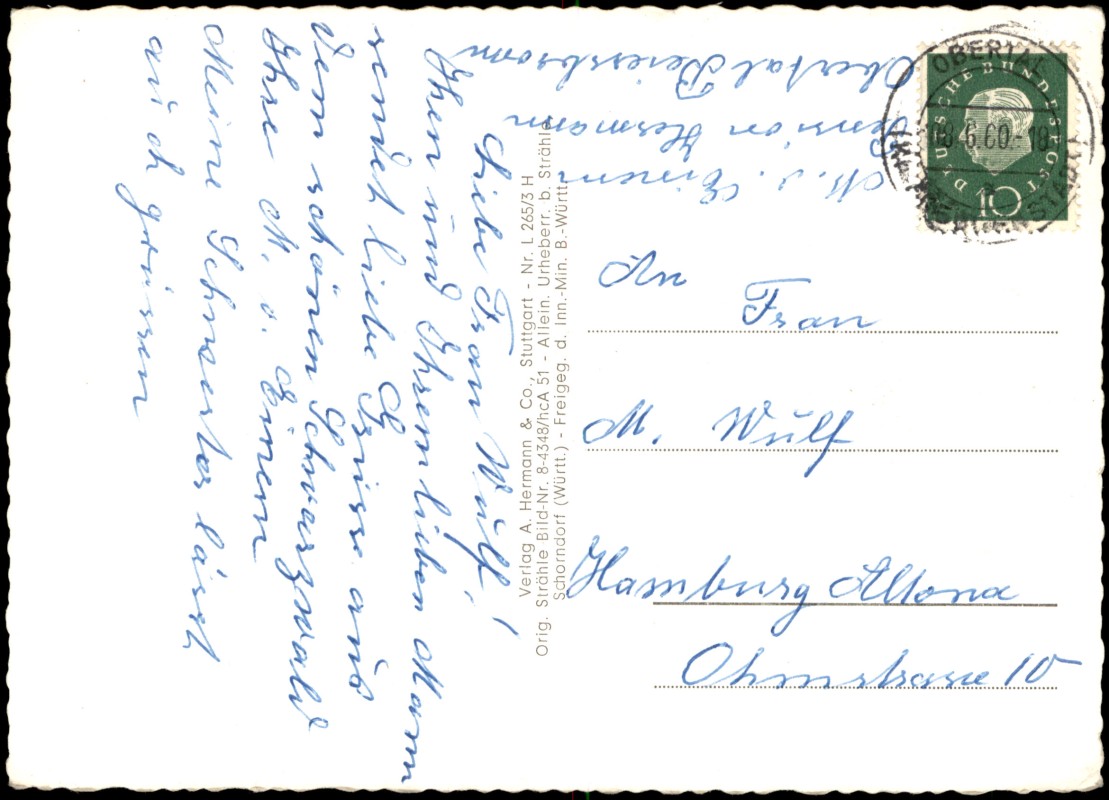 M. v. Einem
Pension Hermann
Obertal Beiersbronn
Liebe Frau Wulf!
Ihnen und Ihrem lieben Mann
sendet liebe Grüsse aus
dem schönen Schwarzwald
Ihre M. v. Einem
Meine Schwester lässt
auch grüssen
Verlag A. Hermann & Co., Stuttgart - Nr. L 265/3 H
Orig. Strähle Bild-Nr. 8-4348/hcA 51 - Allein. Urheberr. b. Strähle
Schorndorf (Württ.) - Freigeg. d. Inn.-Min. B.-Württ.
OBERTAL
08.6.60.-18
DEUTSCHE BUNDESPOST
10
An
Frau
M. Wulf
Hamburg Altona
Ohmstrasse 10